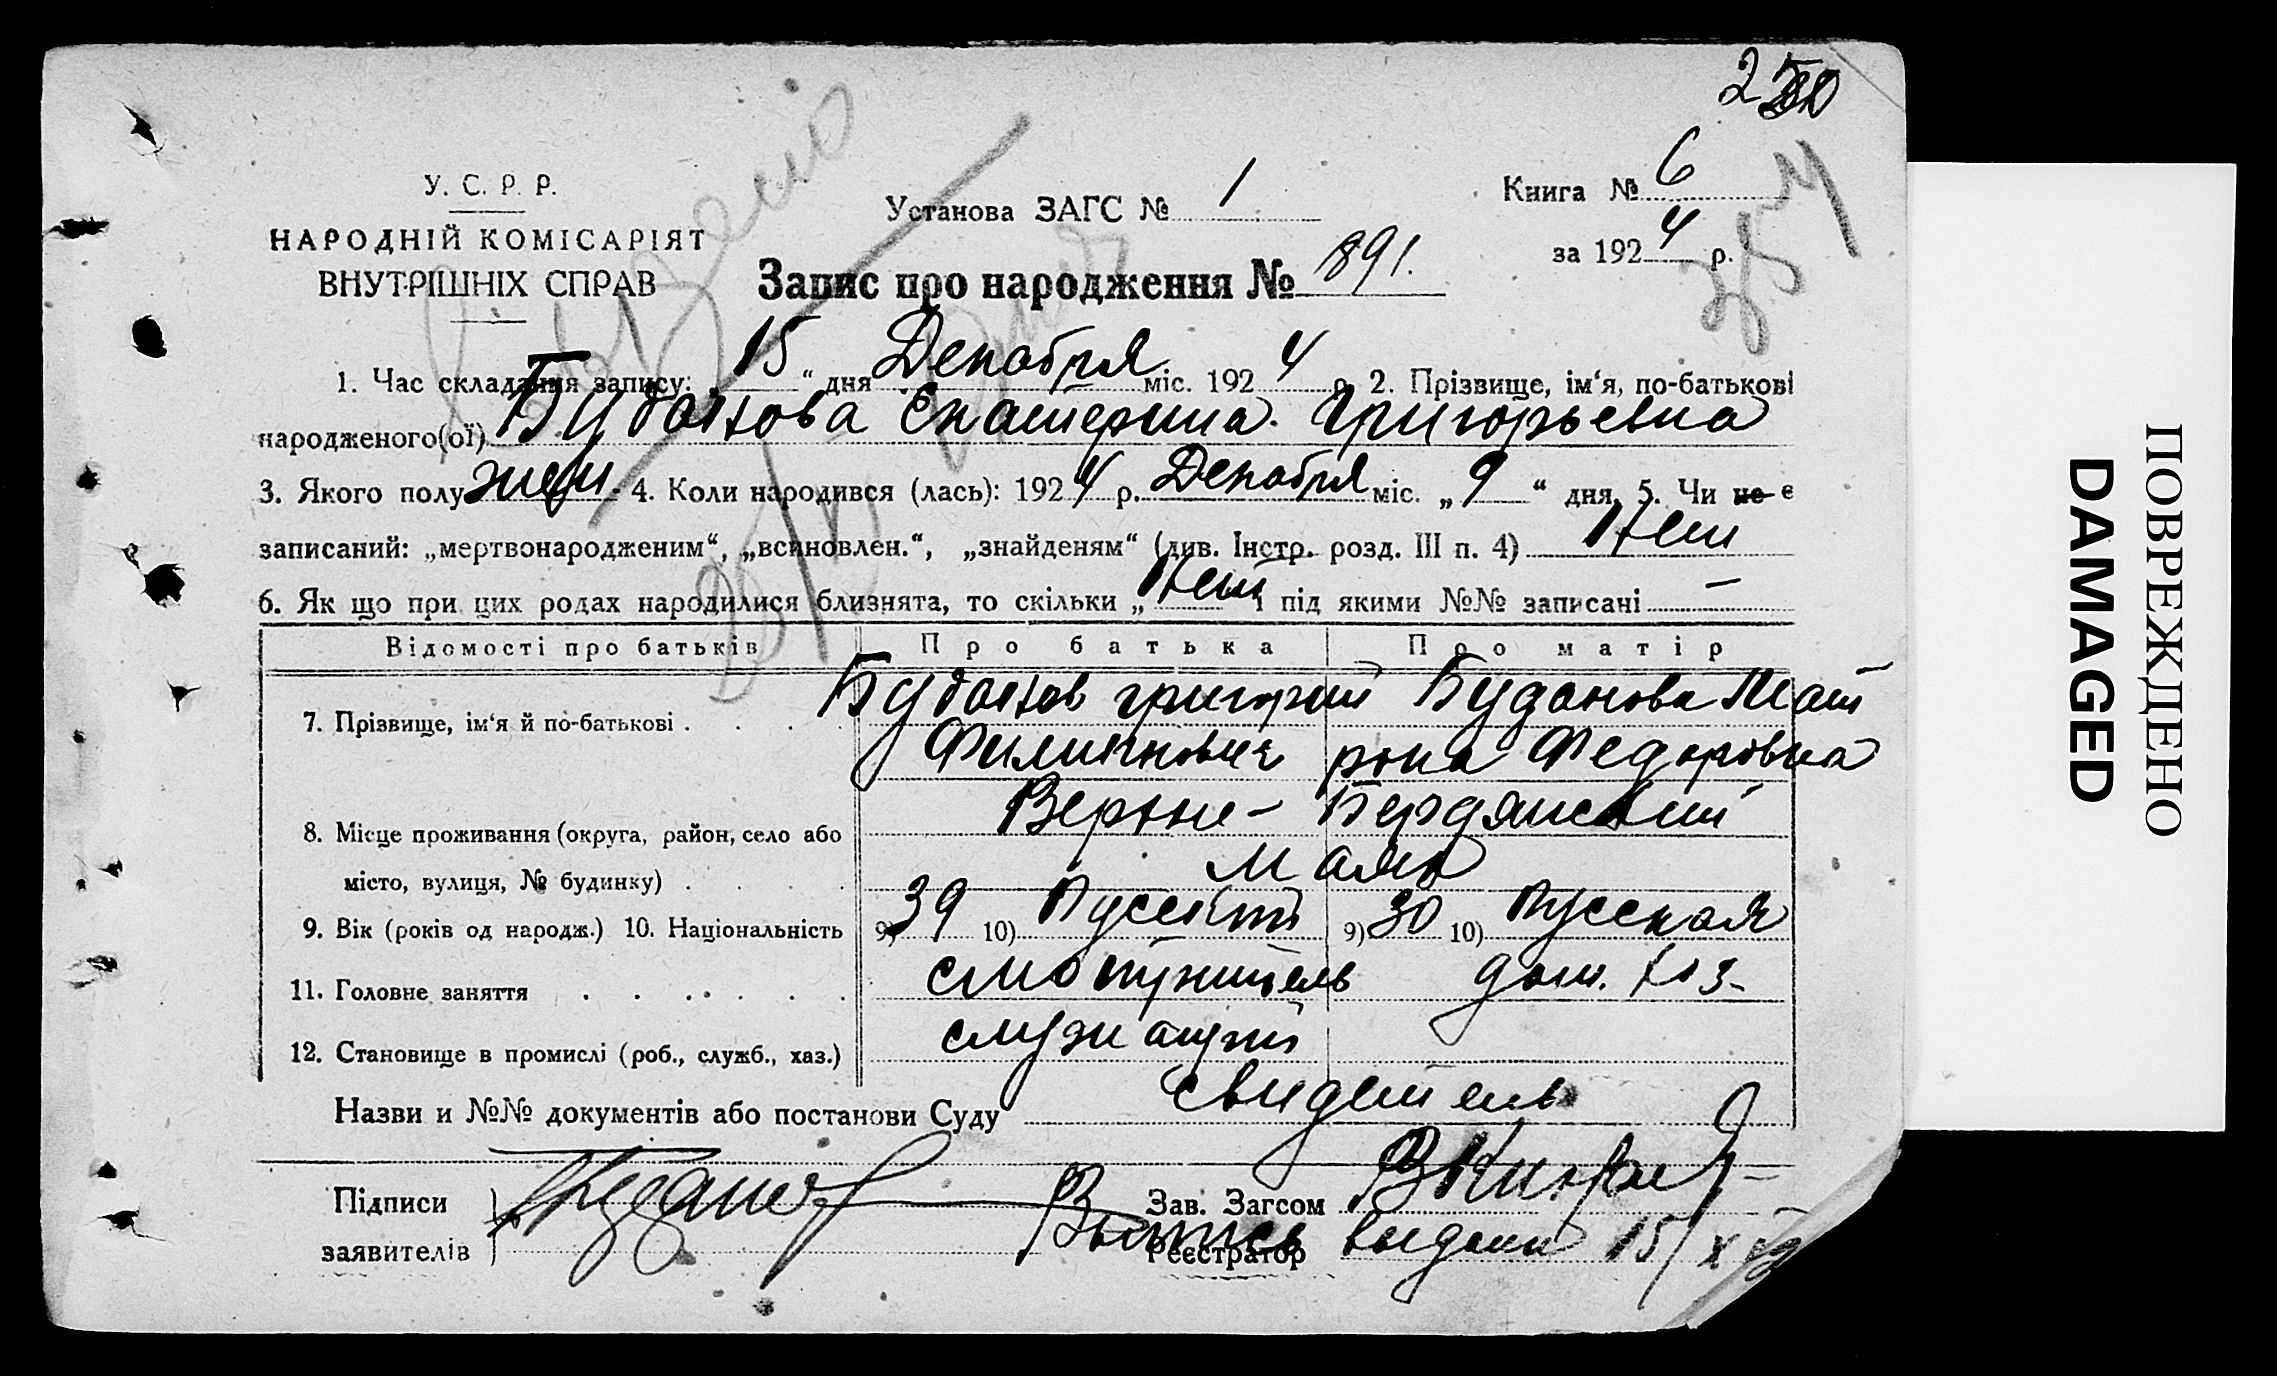 У. С. Р. Р.
НАРОДНІЙ КОМІСАРІЯТ
ВНУТРІШНІХ СПРАВ
Установа ЗАГС № 1
Книга № 6
за 1924 р.
Запис про народження № 891.
1. Час складання запису: „15“ дня Декабря міс. 1924 р. 2. Прізвище, ім‘я, по-батькові
народженого(ої) Буданова Екатерина Григорьевна
3. Якого полу жен 4. Коли народився (лась): 1924 р. Декабря міс. „9“ дня, 5. Чи не є
записаний: „мертвонародженим“, „всиновлен.“, „знайденям“ (див. Інстр. розд. III п. 4) Нет
6. Як що при цих родах народилися близнята, то скільки „Нет і під якими №№ записані —
Відомості про батьків Про батька Про матір
7. Прізвище, ім‘я й по-батькові . . . . Буданов Григорий Буданова Мат
Филиппович рона Федоровна
8. Місце проживання (округа, район, село або Верхне-Бердянский
місто, вулиця, № будинку) . . . . маяк
9. Вік (років од народж.) 10. Національність 9) 39 10) Русский 9) 30 10) Русская
11. Головне заняття . . . . . . . смотритель дом. хоз.
12. Становище в промислі (роб., служб., хаз.) служащий
Назви и №№ документів або постанови Суду свидетель
Підписи
заявителів
Зав. Загсом
Реєстратор
Выпись выдана 15/X
ПОВРЕЖДЕНО
DAMAGED